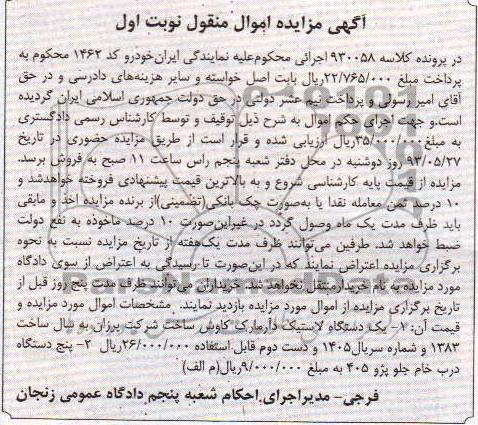 آگهی مزایده اموال منقول نوبت اول
در پرونده کلاسه ۹۳۰۰۵۸ اجرائی محکوم‌علیه نمایندگی ایران‌خودرو کد ۱۴۶۲ محکوم به
پرداخت مبلغ ۲۲/۷۶۵/۰۰۰ریال بابت اصل خواسته و سایر هزینه‌های دادرسی و در حق
آقای امیر رسولی و پرداخت نیم عشر دولتی در حق دولت جمهوری اسلامی ایران گردیده
است.و جهت اجرای حکم اموال به شرح ذیل توقیف و توسط کارشناس رسمی دادگستری
به مبلغ۳۵/۰۰۰/۰۰۰ریال ارزیابی شده و قرار است از طریق مزایده حضوری در تاریخ
۹۳/۰۵/۲۷ روز دوشنبه در محل دفتر شعبه پنجم راس ساعت ۱۱ صبح به فروش برسد.
مزایده از قیمت پایه کارشناسی شروع و به بالاترین قیمت پیشنهادی فروخته خواهدشد و
۱۰ درصد ثمن معامله نقدا یا به‌صورت چک بانکی(تضمینی)از برنده مزایده اخذ و مابقی
باید ظرف مدت یک ماه وصول گردد در غیراین‌صورت ۱۰ درصد ماخوذه به نفع دولت
ضبط خواهد شد. طرفین می‌توانند ظرف مدت یک‌هفته از تاریخ مزایده نسبت به نحوه
برگزاری مزایده اعتراض نمایند که در این‌صورت تا رسیدگی به اعتراض از سوی دادگاه
مورد مزایده به نام خریدارمنتقل نخواهد شد. خریداران می‌توانند ظرف مدت پنج روز قبل از
تاریخ برگزاری مزایده از اموال مورد مزایده بازدید نمایند. مشخصات اموال مورد مزایده و
قیمت آن: ۱- یک دستگاه لاستیک درآرمارک کاوش ساخت شرکت برزان به سال ساخت
۱۳۸۳ و شماره سریال۱۴۰۵ و دست دوم قابل استفاده ۲۶/۰۰۰/۰۰۰ریال ۲- پنج دستگاه
درب خام جلو پژو ۴۰۵ به مبلغ ۹/۰۰۰/۰۰۰ریال(م الف)
فرجی- مدیراجرای احکام شعبه پنجم دادگاه عمومی زنجان